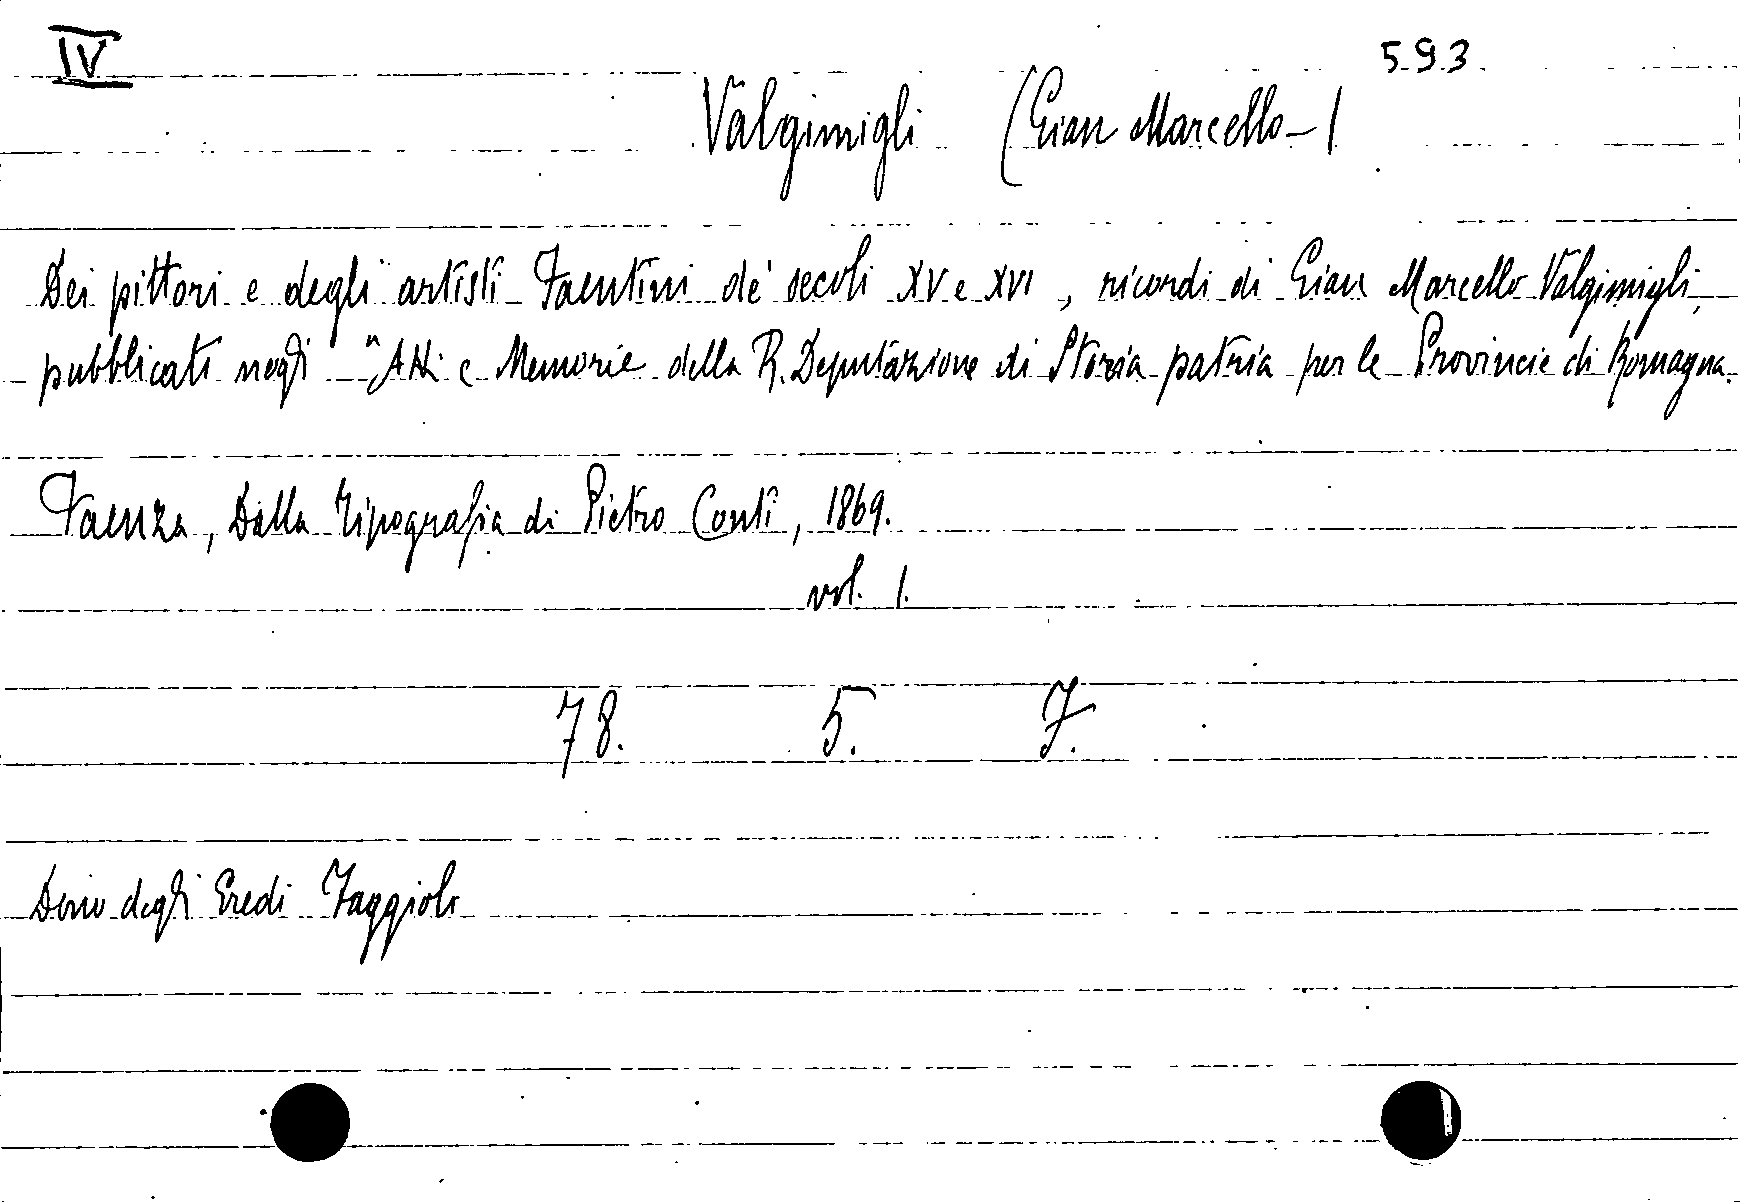 IV
593
Valgimigli (Gian Marcello-)
Dei pittori e degli artisti Faentini de' secoli XV e XVI, ricordi di Gian Marcello Valgimigli,
pubblicati negli "Atti e Memorie della R. Deputazione di Storia patria per le Provincie di Romagna.
Faenza, Dalla Tipografia di Pietro Conti, 1869.
vol. 1.
78. 5. 7.
Dono degli Eredi Taggiolo